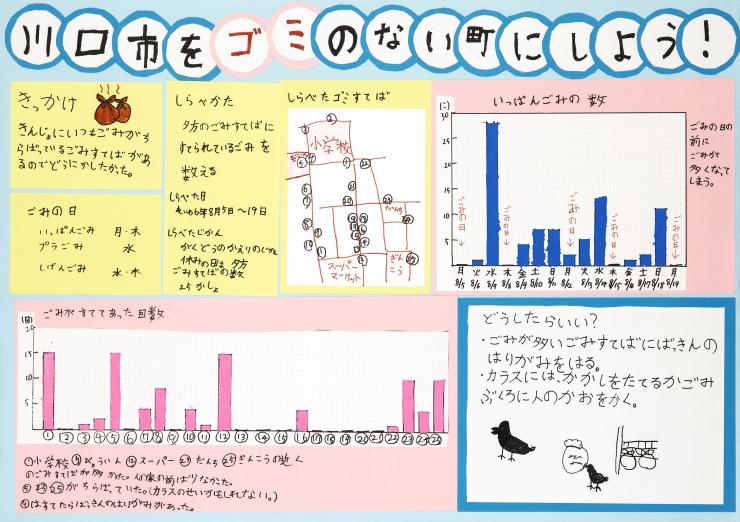 川口市をゴミのない町にしよう!
きっかけ
きんじょにいつもごみがち
らばっているごみすてばがあ
るのでどうにかしたかった。
ごみの日
いっぱんごみ 月・木
プラごみ 水
しげんごみ 水・木
しらべかた
夕方のごみすてばに
すてられているごみを
数える
しらべた日
れいわ6年8月5日〜19日
しらべたじかん
がくどうのかえりのじかん
休みの日は夕方
ごみすてばの数
25かしょ
しらべたゴミすてば
小学校
だんち
スーパー
マーケット
ぎん
こう
いっぱんごみの数
(こ)
30
25
20
15
10
5
ごみの日
ごみの日
ごみの日
ごみの日
ごみの日
月 火 水 木 金 土 日 月 火 水 木 金 土 日 月
8/5 8/6 8/9 8/10 8/11 8/12 8/13 8/14 8/15 8/16 8/17 8/18 8/19
ごみの日の
前に
ごみが
多くなって
しまう。
ごみがすててあった回数
(回)
20
15
10
5
① ② ③ ④ ⑤ ⑥ ⑦ ⑧ ⑨ ⑩ ⑪ ⑫ ⑬ ⑭ ⑮ ⑯ ⑰ ⑱ ⑲ ⑳ ㉑ ㉒ ㉓ ㉔ ㉕
①小学校 びょういん ⑫スーパー ㉓だんち ㉕ぎんこうの近く
のごみすてばが多かった。人の家の前はすくなかった。
⑤ ㉓ ㉕がちらばっていた。(カラスのせいかもしれない。)
はすてたらばっきんのはりがみがあった。
どうしたらいい?
・ごみが多いごみすてばにばっきんの
はりがみをはる。
・カラスには、かかしをたてるかごみ
ぶくろに人のかおをかく。